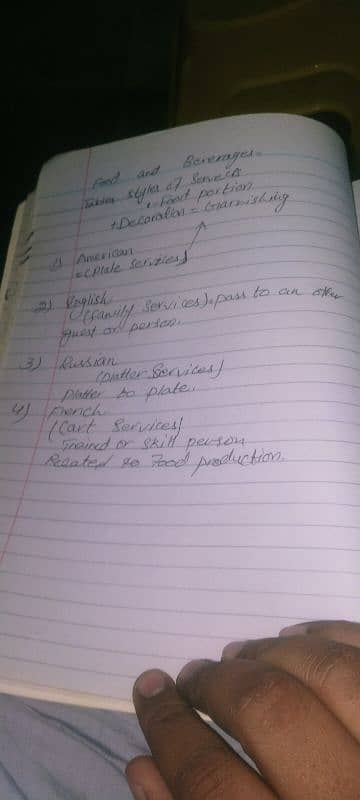 Food and Beverages.
Tables styles of Services
• Food portion
+ Decoration = Garnishing
1) American
(Plate Services)
2) English
(family Services). pass to an other
guest or person.
3) Russian
(platter Services)
platter to plate.
4) French
(Cart Services)
Trained or skill person
Related to Food production.